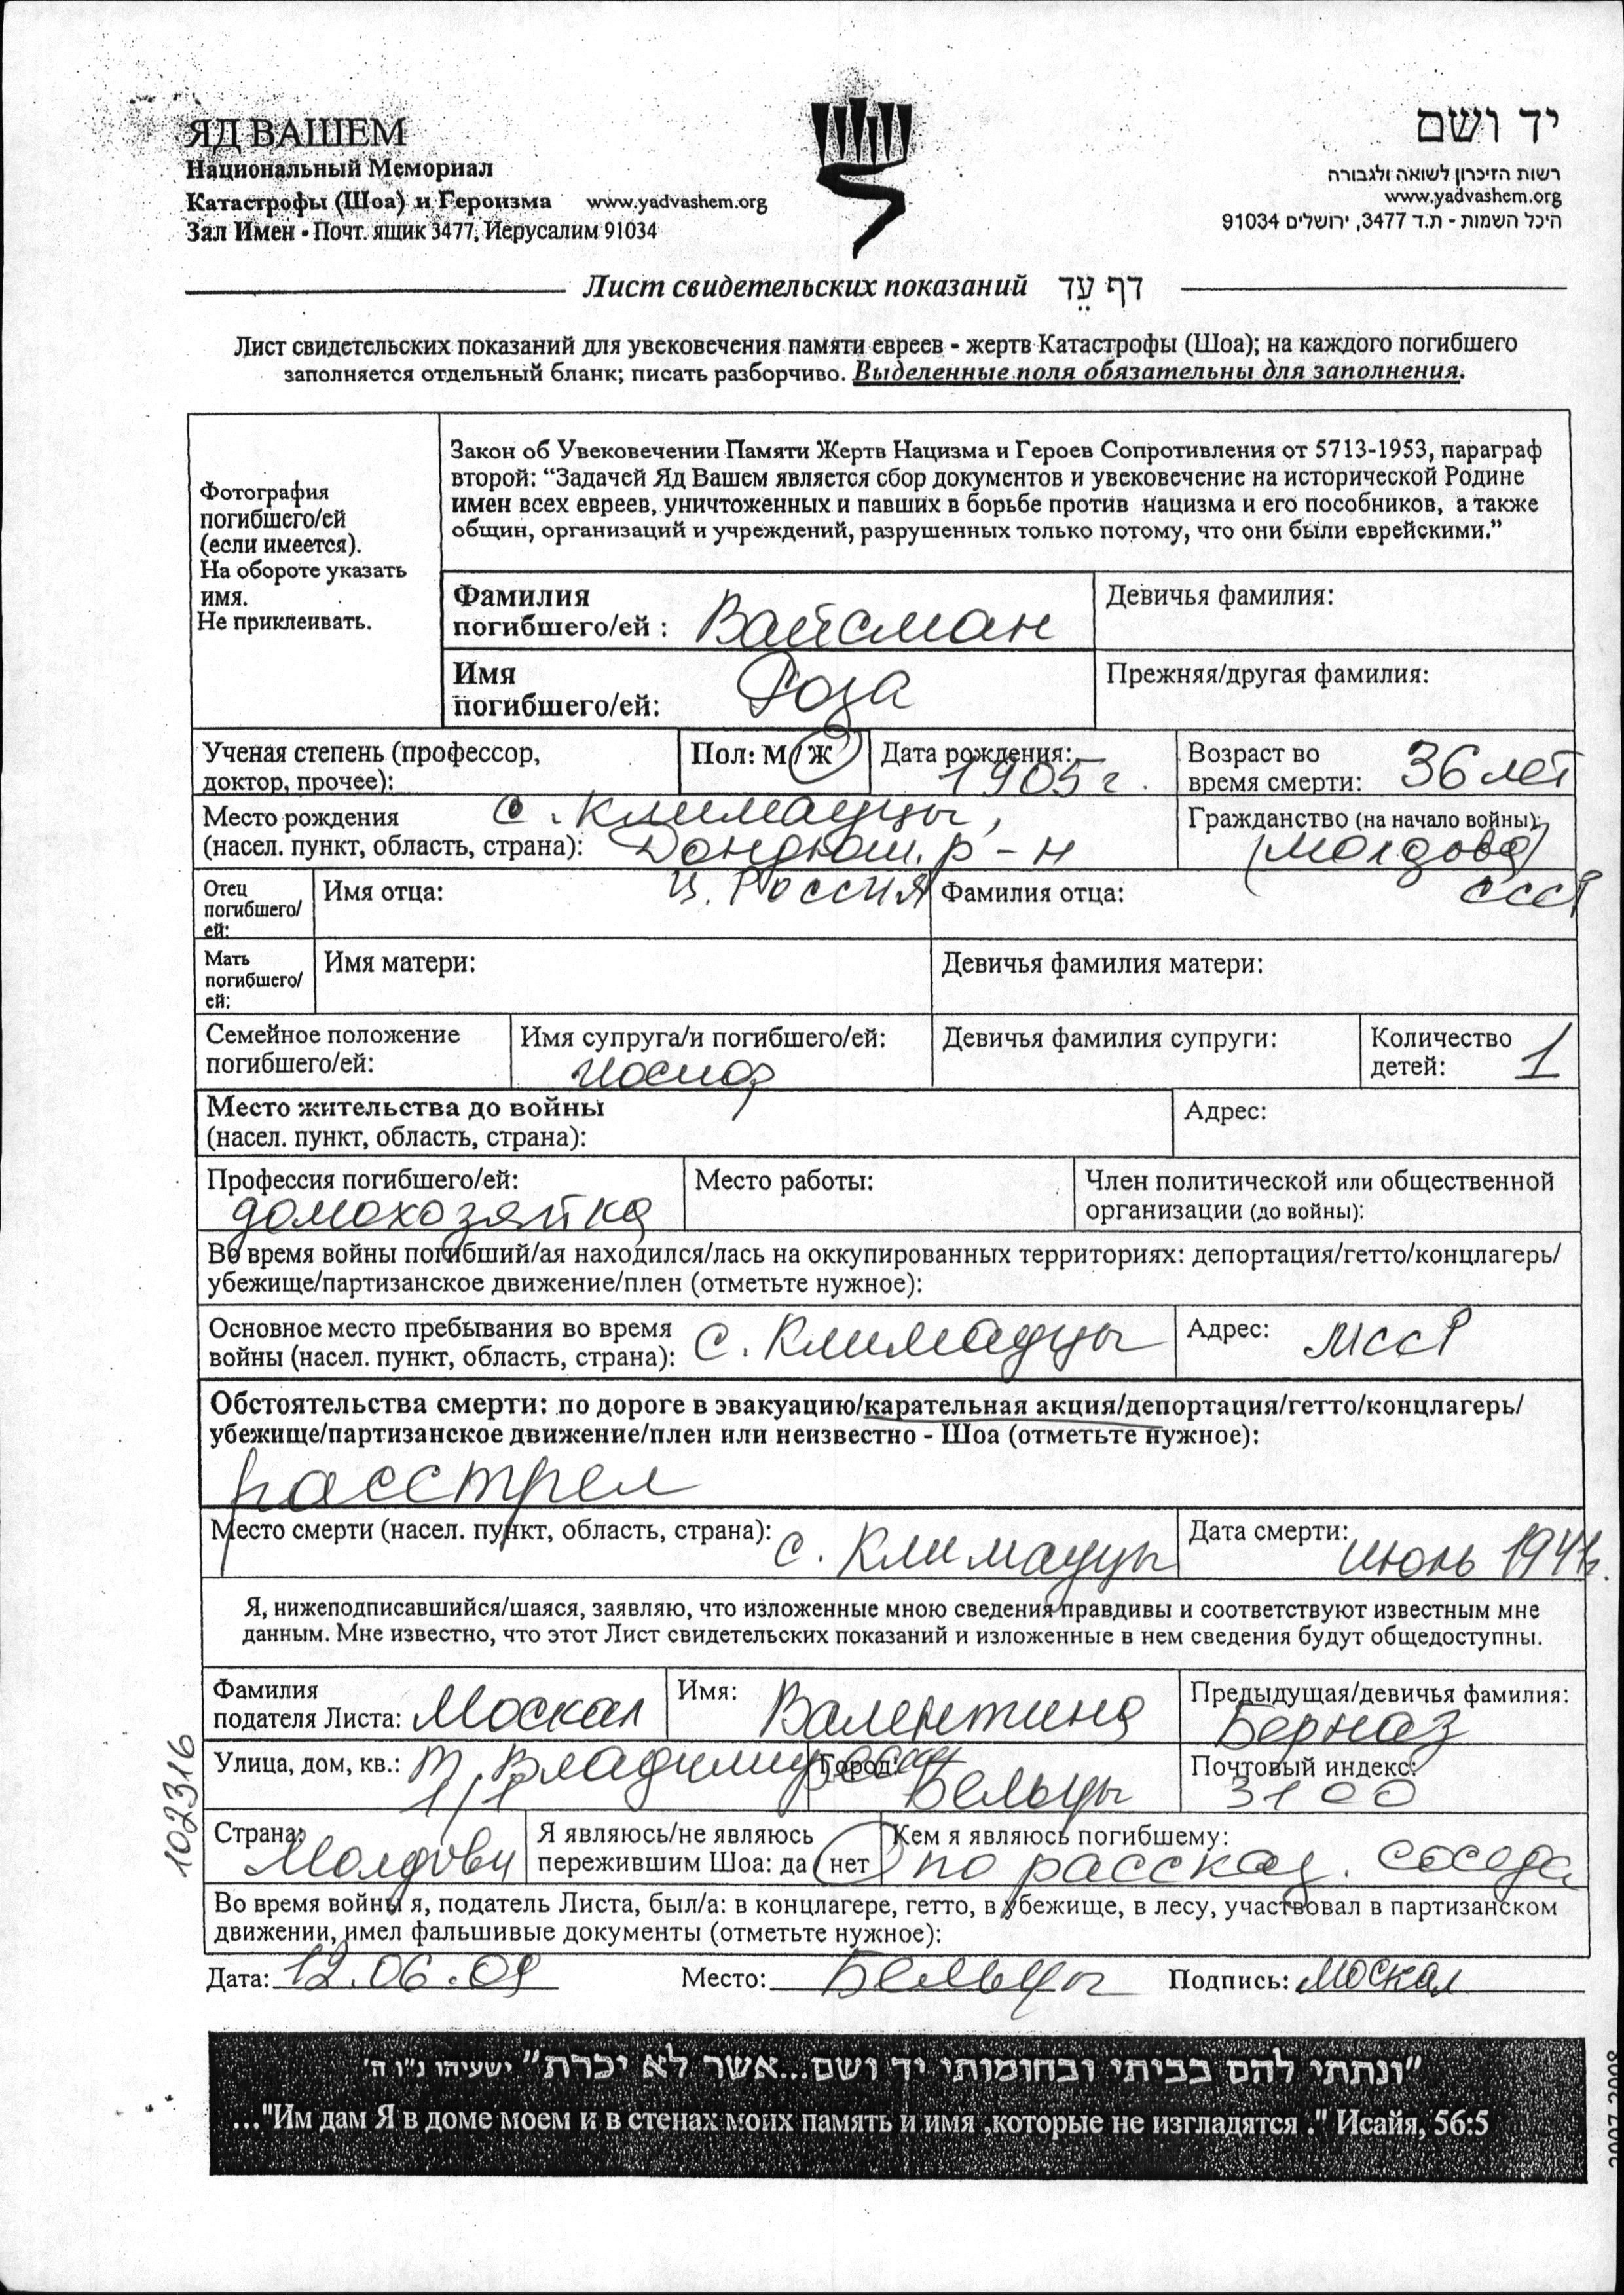 ЯД ВАШЕМ
Национальный Мемориал
Катастрофы (Шоа) и Героизма www.yadvashem.org
Зал Имен - Почт. ящик 3477, Иерусалим 91034
יד ושם
רשות הזיכרון לשואה ולגבורה
www.yadvashem.org
היכל השמות - ת.ד 3477, ירושלים 91034
Лист свидетельских показаний דף עֵד
Лист свидетельских показаний для увековечения памяти евреев - жертв Катастрофы (Шоа); на каждого погибшего
заполняется отдельный бланк; писать разборчиво. Выделенные поля обязательны для заполнения.
Фотография
погибшего/ей
(если имеется).
На обороте указать
имя.
Не приклеивать.
Закон об Увековечении Памяти Жертв Нацизма и Героев Сопротивления от 5713-1953, параграф
второй: “Задачей Яд Вашем является сбор документов и увековечение на исторической Родине
имен всех евреев, уничтоженных и павших в борьбе против нацизма и его пособников, а также
общин, организаций и учреждений, разрушенных только потому, что они были еврейскими.”
Фамилия
погибшего/ей : Вайсман
Девичья фамилия:
Имя
погибшего/ей: Роза
Прежняя/другая фамилия:
Ученая степень (профессор,
доктор, прочее):
Пол: М/Ж
Дата рождения:
1905 г.
Возраст во
время смерти: 36 лет
Место рождения с. Климауцы,
(насел. пункт, область, страна): Дондюш. р-н
ц. Россия
Гражданство (на начало войны):
(Молдова)
СССР
Отец
погибшего/
ей:
Имя отца:
Фамилия отца:
Мать
погибшего/
ей:
Имя матери:
Девичья фамилия матери:
Семейное положение
погибшего/ей:
Имя супруга/и погибшего/ей:
Иосиф
Девичья фамилия супруги:
Количество
детей: 1
Место жительства до войны
(насел. пункт, область, страна):
Адрес:
Профессия погибшего/ей:
домохозяйка
Место работы:
Член политической или общественной
организации (до войны):
Во время войны погибший/ая находился/лась на оккупированных территориях: депортация/гетто/концлагерь/
убежище/партизанское движение/плен (отметьте нужное):
Основное место пребывания во время
войны (насел. пункт, область, страна): с. Климауцы
Адрес: МССР
Обстоятельства смерти: по дороге в эвакуацию/карательная акция/депортация/гетто/концлагерь/
убежище/партизанское движение/плен или неизвестно - Шоа (отметьте нужное):
расстрел
Место смерти (насел. пункт, область, страна): с. Климауцы
Дата смерти:
июль 1941г.
Я, нижеподписавшийся/шаяся, заявляю, что изложенные мною сведения правдивы и соответствуют известным мне
данным. Мне известно, что этот Лист свидетельских показаний и изложенные в нем сведения будут общедоступны.
Фамилия
подателя Листа: Москал
Имя: Валентина
Предыдущая/девичья фамилия:
Берназ
Улица, дом, кв.: Т. Владимиреску
1/1
Город:
Бельцы
Почтовый индекс:
3100
Страна:
Молдова
Я являюсь/не являюсь
пережившим Шоа: да/нет
Кем я являюсь погибшему:
по рассказ. соседа
Во время войны я, податель Листа, был/а: в концлагере, гетто, в убежище, в лесу, участвовал в партизанском
движении, имел фальшивые документы (отметьте нужное):
Дата: 12.06.09 Место: Бельцы Подпись: Москал
102316
"ונתתי להם בביתי ובחומותי יד ושם...אשר לא יכרת" ישעיהו נ"ו ה'
..."Им дам Я в доме моем и в стенах моих память и имя ,которые не изгладятся ." Исайя, 56:5